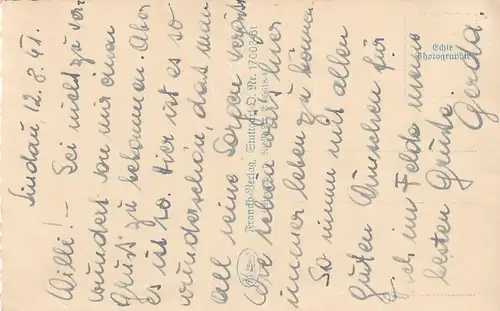 Lindau, 12.8.41.
Willi! – Sei nicht zu ver-
wundert von mir einen
Gruß zu bekommen. Aber
es ist so. Hier ist es so
wunderschön, daß man
all seine Sorgen vergißt
immer leben zu können
So nimm mit allen
guten Wünschen für
Dich im Felde meine
besten Grüße.
Gerda.
Franckh-Verlag, Stuttgart-O.
Echte
Photographie